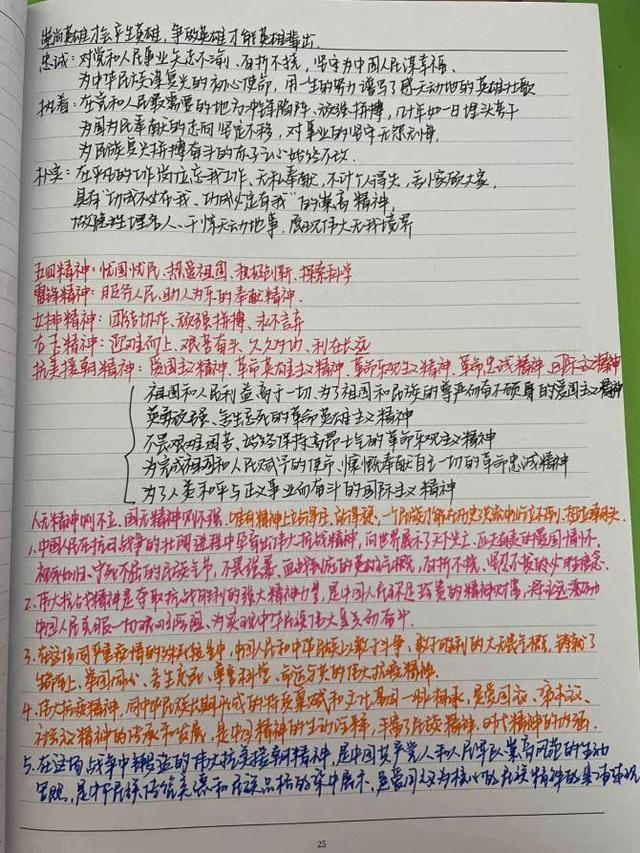 崇尚英雄才会产生英雄,争做英雄才能英雄辈出.
忠诚:对党和人民事业矢志不渝、百折不挠,坚守为中国人民谋幸福、
为中华民族谋复兴的初心使命,用一生的努力谱写了感天动地的英雄壮歌
执着:在党和人民最需要的地方冲锋陷阵、顽强拼搏,几十年如一日埋头苦干
为国为民奉献的志向坚定不移,对事业的坚守无怨无悔,
为民族复兴拼搏奋斗的赤子之心始终不改.
朴实:在平凡的工作岗位忘我工作、无私奉献,不计个人得失,舍小家顾大家,
具有"功成不必在我、功成必定有我"的崇高精神,
做隐姓埋名人、干惊天动地事,展现伟大无我境界
五四精神:忧国忧民、热爱祖国、积极创新、探索科学
雷锋精神:服务人民、助人为乐的奉献精神.
女排精神:团结协作、顽强拼搏、永不言弃
右玉精神:迎难而上、艰苦奋斗、久久为功、利在长远
抗美援朝精神:爱国主义精神、革命英雄主义精神、革命乐观主义精神、革命忠诚精神、国际主义精神
祖国和人民利益高于一切、为了祖国和民族的尊严而奋不顾身的爱国主义精神
英勇顽强、舍生忘死的革命英雄主义精神
不畏艰难困苦、始终保持高昂士气的革命乐观主义精神
为完成祖国和人民赋予的使命、慷慨奉献自己一切的革命忠诚精神
为了人类和平与正义事业而奋斗的国际主义精神
人无精神则不立,国无精神则不强.唯有精神上站得住、站得稳,一个民族才能在历史洪流中屹立不倒、挺立潮头.
1.中国人民在抗日战争的壮阔进程中孕育出伟大抗战精神,向世界展示了天下兴亡、匹夫有责的爱国情怀,
视死如归、宁死不屈的民族气节,不畏强暴、血战到底的英雄气概,百折不挠、坚忍不拔的必胜信念.
2.伟大抗战精神是夺取抗战胜利的强大精神力量,是中国人民弥足珍贵的精神财富,将永远激励
中国人民克服一切艰难险阻、为实现中华民族伟大复兴而奋斗.
3.在这场同严重疫情的殊死较量中,中国人民和中华民族以敢于斗争、敢于胜利的大无畏气概,铸就了
生命至上、举国同心、舍生忘死、尊重科学、命运与共的伟大抗疫精神.
4.伟大抗疫精神,同中华民族长期形成的特质禀赋和文化基因一脉相承,是爱国主义、集体主义、
社会主义精神的传承和发展,是中国精神的生动诠释,丰富了民族精神、时代精神的内涵.
5.在这场战争中锻造的伟大抗美援朝精神,是中国共产党人和人民军队崇高风范的生动
写照,是中华民族传统美德和民族品格的集中展示,是爱国主义为核心的民族精神的具体体现
25